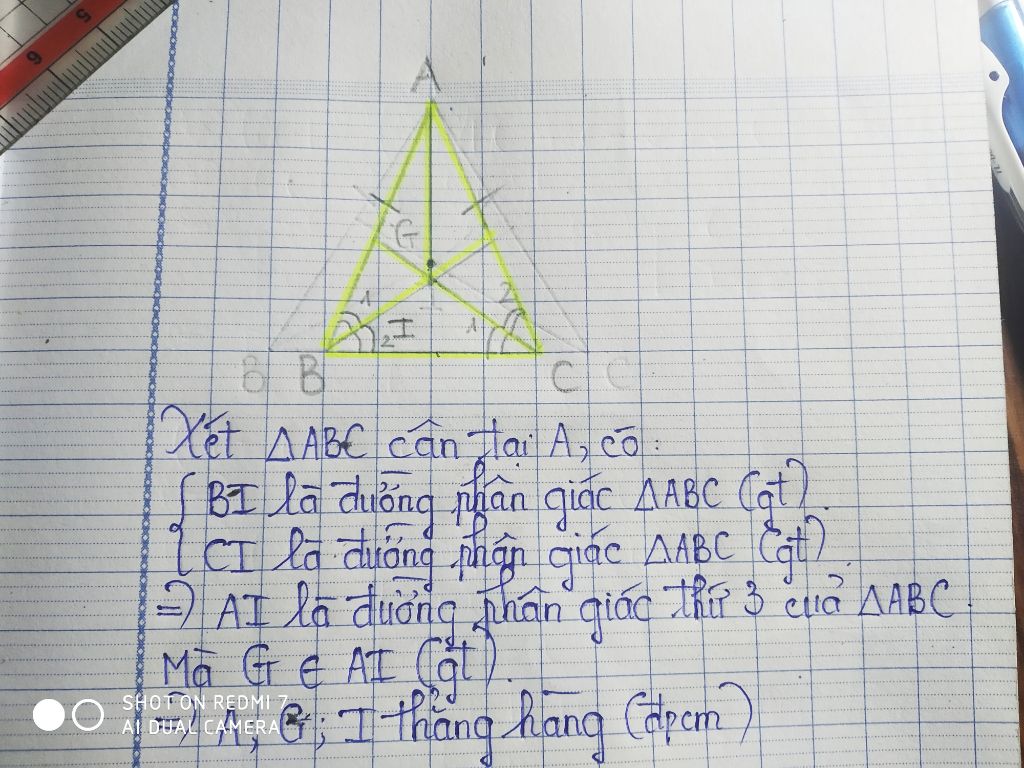 5
6
A
G
1
2
I
2
1
B
B
C
C
Xét ΔABC cân tại A, có:
BI là đường phân giác ΔABC (gt).
CI là đường phân giác ΔABC (gt).
=) AI là đường phân giác thứ 3 của ΔABC.
Mà G ∈ AI (gt).
=) A, G; I thẳng hàng (đpcm)
SHOT ON REDMI 7
AI DUAL CAMERA